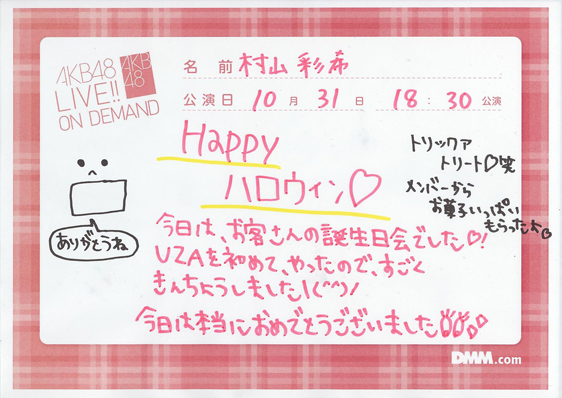 AKB48
LIVE!!
ON DEMAND
AKB
48
名 前 村山 彩希
公演日 10月 31日 18:30 公演
Happy
ハロウィン♡
トリックァ
トリート♡笑
メンバーから
お菓子いっぱい
もらったよ♡
ありがとうね
今日は、お客さんの誕生日会でした♡!
UZAを初めて、やったので、すごく
きんちょうしました!(^^)!
今日は本当におめでとうございました♡
DMM.com